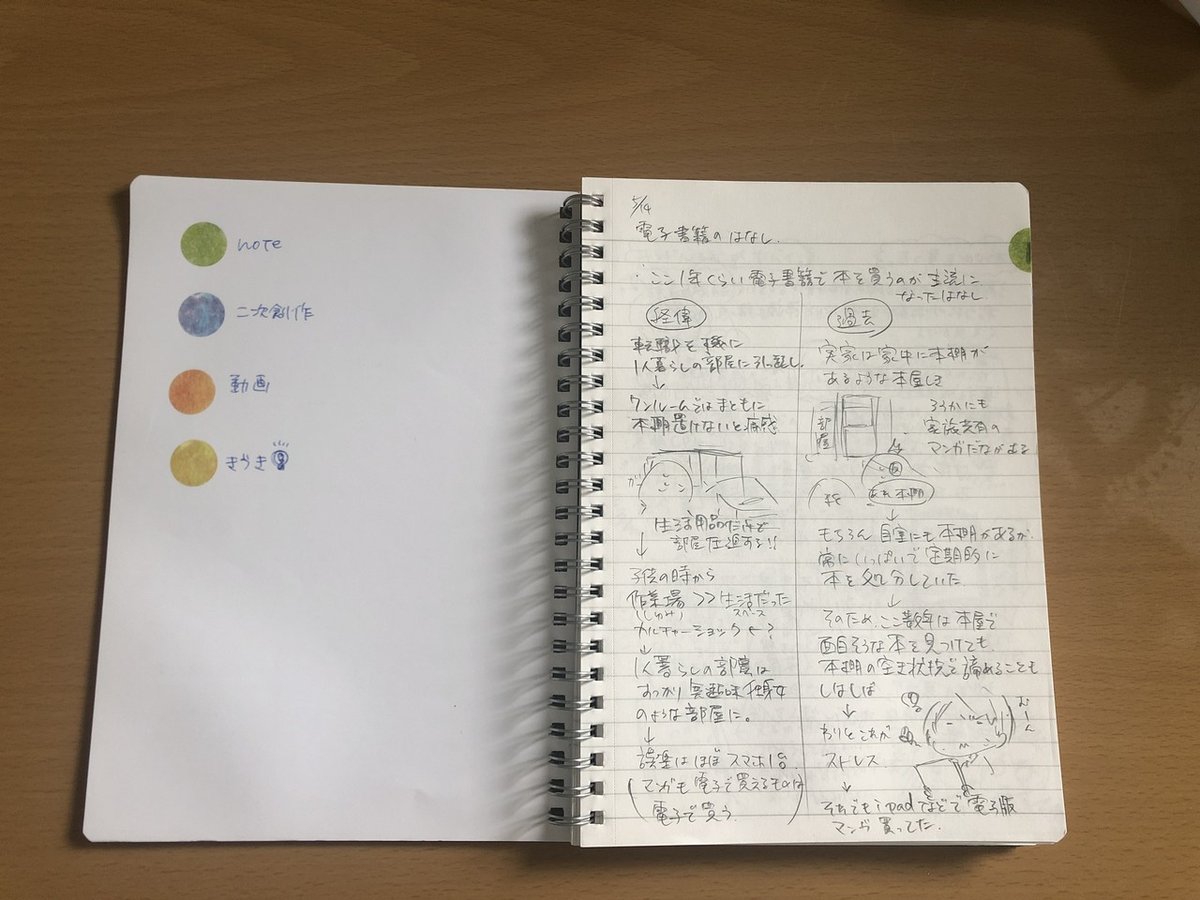 note
二次創作
動画
5/14
電子書籍のはなし.
ここ1年くらい電子書籍で本を買うのが主流に
なったはなし
経偉
転職を機に
1人暮らしの部屋に引越し.
↓
ワンルームではまともに
本棚置けないと痛感
生活用品だけで
部屋圧迫する!!
↓
子供の時から
作業場 >> 生活だった
(しゅみ) スペース
カルチャーショック ←?
↓
1人暮らしの部屋は
すっかり 無趣味
のような部屋に。
↓
娯楽はほぼスマホ1台
(マンガも電子で買えるものは
電子で買う.)
過去
実家は家中に本棚が
あるような本屋しき
部屋
ろうかにも
家族共有の
マンガだながある
本棚
↓
もちろん自室にも本棚があるが.
常にいっぱいで定期的に
本を処分していた.
↓
そのため、ここ数年は本屋で
面白そうな本を見つけても
本棚の空き状況で諦めることも
しばしば
↓
わりとこれが
ストレス.
むーん
↓
それでもipadなどで電子版
マンガ買ってた.